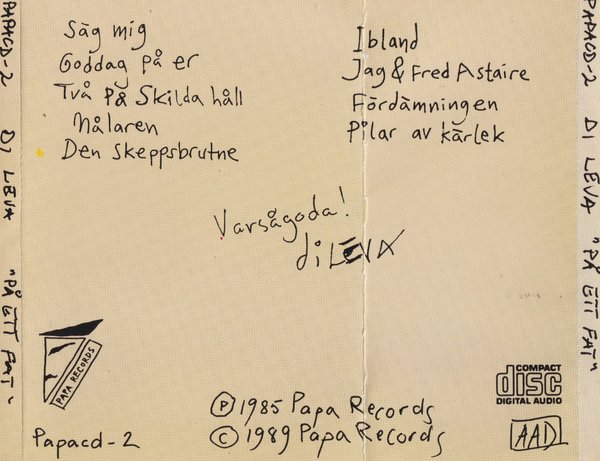 PAPACD-2 DI LEVA "PÅ ETT FAT"
Säg mig
Goddag på er
Två på skilda håll
Målaren
Den skeppsbrutne
Ibland
Jag & Fred Astaire
Fördämningen
Pilar av kärlek
Varsågoda!
di LEVA
PAPA RECORDS
Papacd-2
Ⓟ 1985 Papa Records
© 1989 Papa Records
COMPACT
disc
DIGITAL AUDIO
AAD
PAPACD-2 DI LEVA "PÅ ETT FAT"